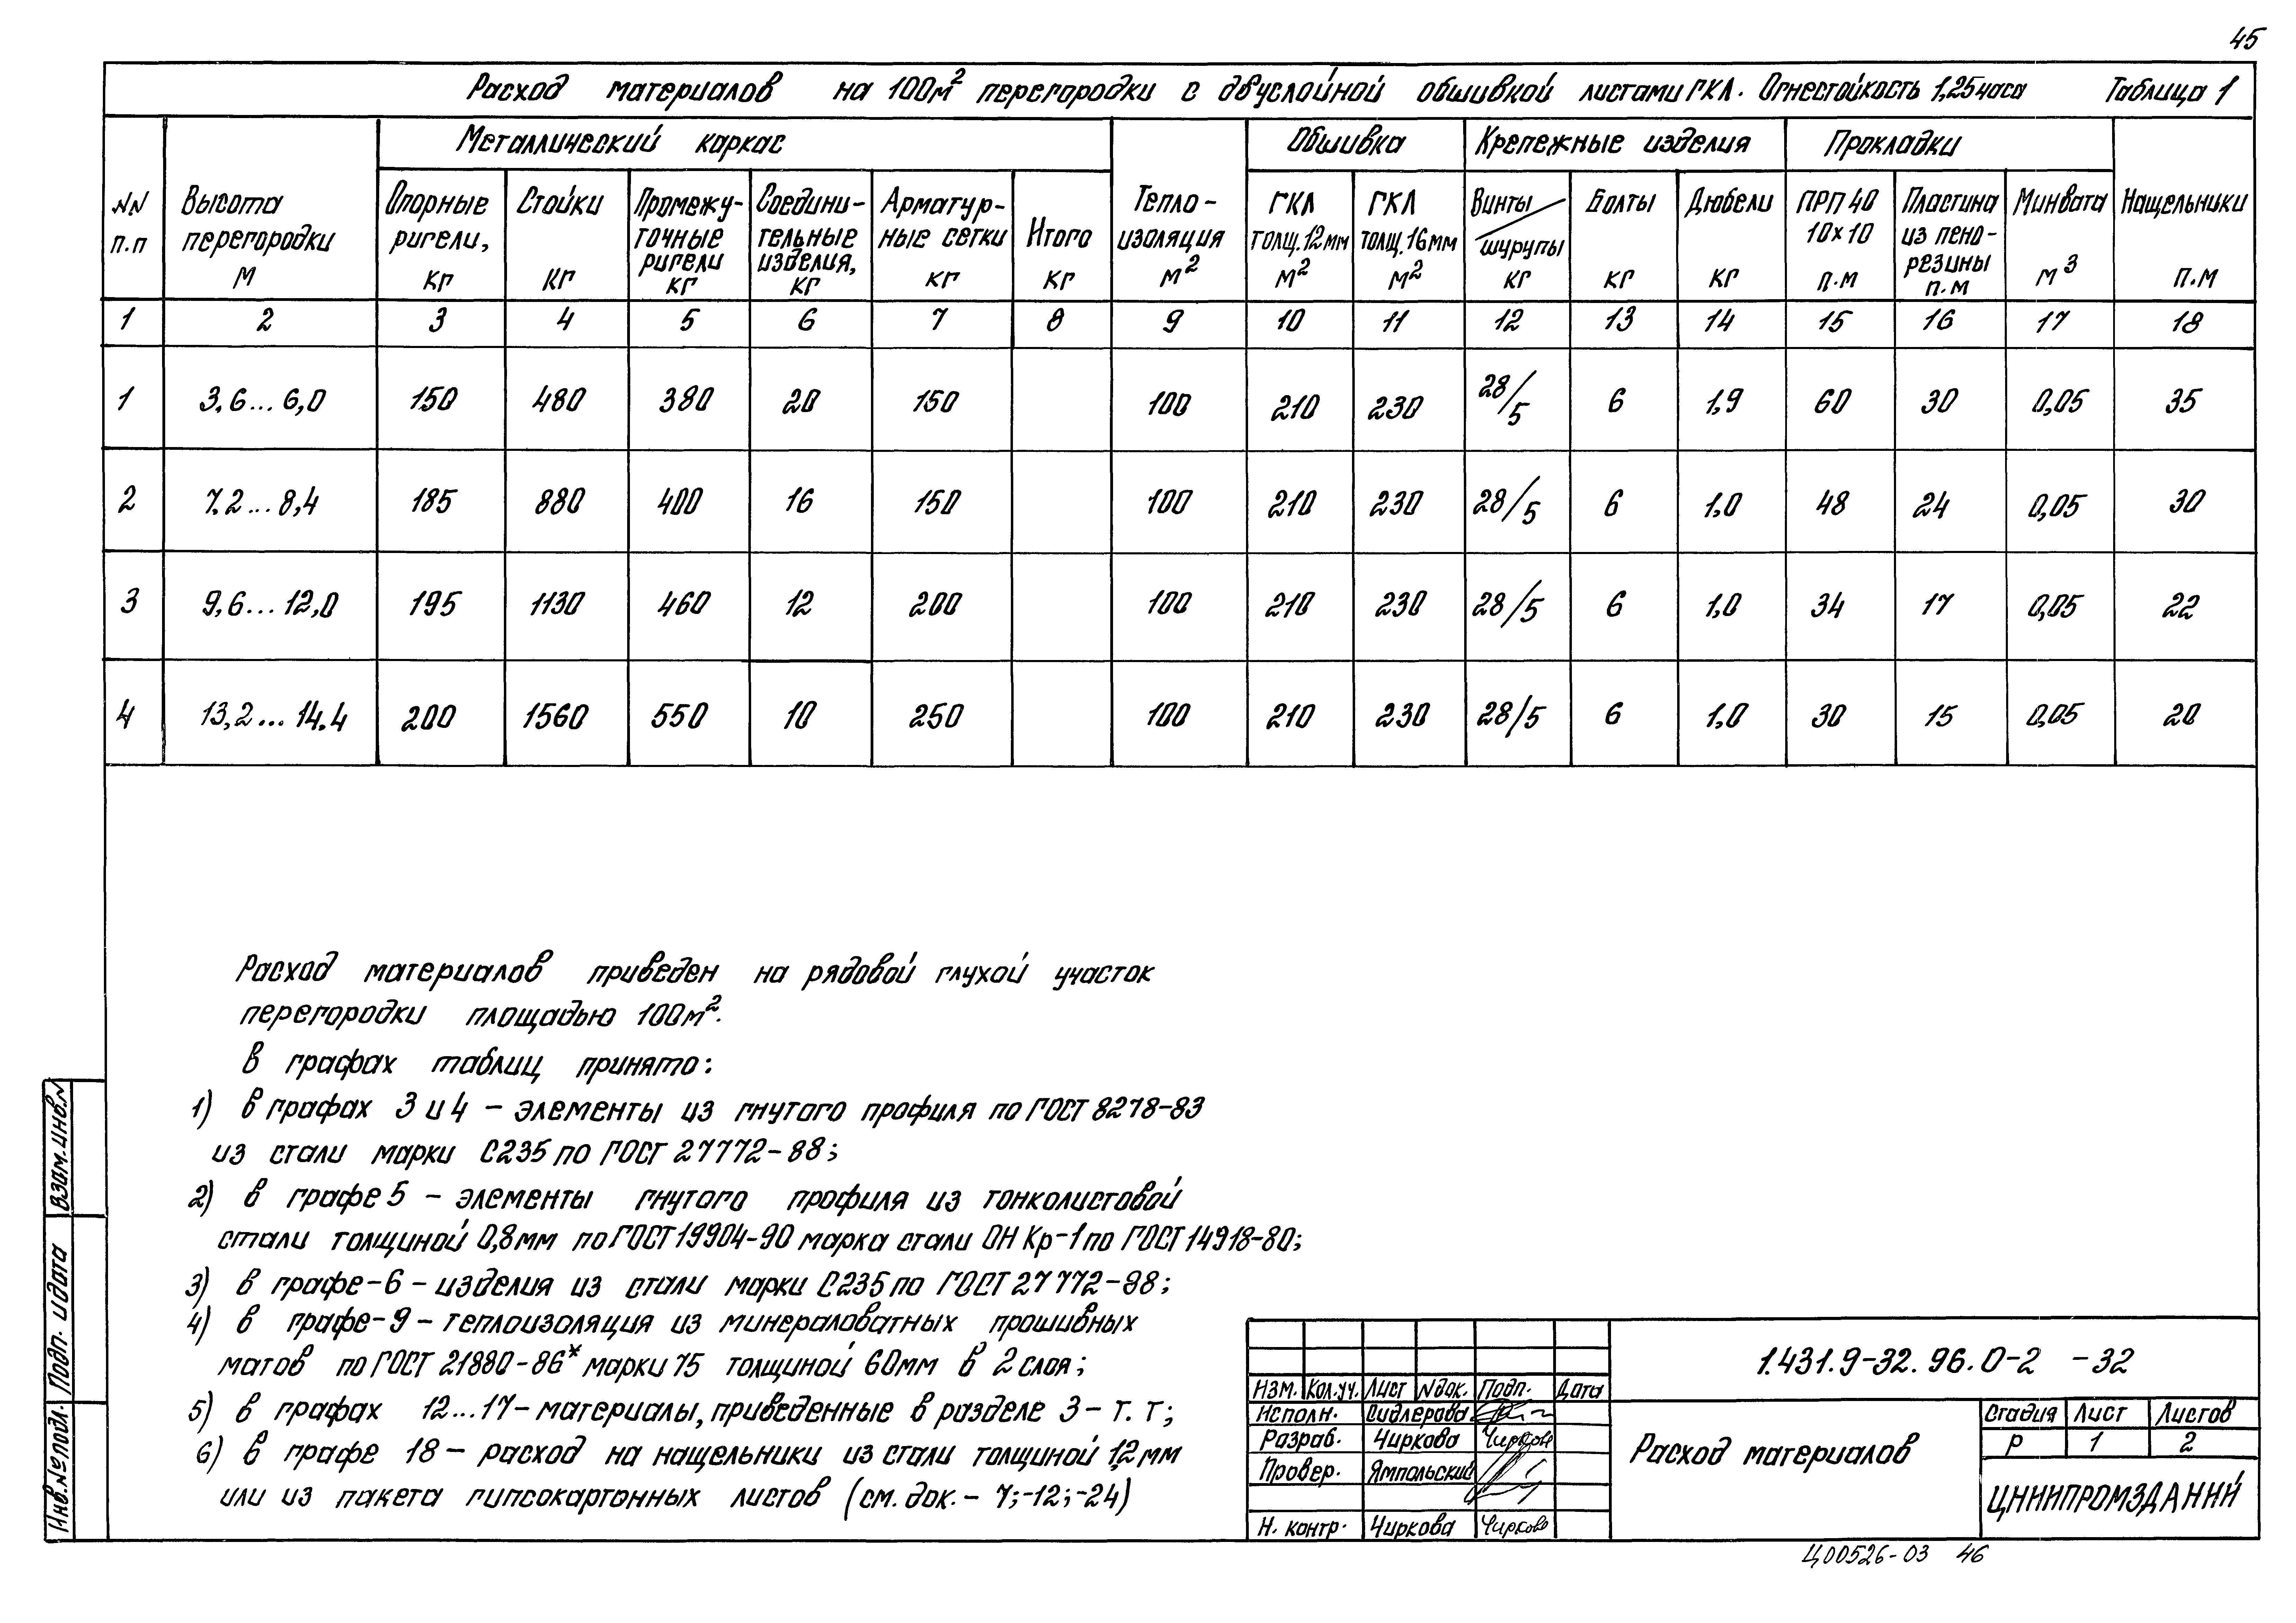 45
Расход материалов на 100м² перегородки с двуслойной обшивкой листами ГКЛ. Огнестойкость 1,25часа Таблица 1
NN п.п
Высота перегородки м
Металлический каркас
Опорные ригели, кг
Стойки кг
Промежу-точные ригели кг
Соедини-тельные изделия, кг
Арматур-ные сетки кг
Итого кг
Тепло-изоляция м²
Обшивка
ГКЛ толщ.12мм м²
ГКЛ толщ.16мм м²
Крепежные изделия
Винты/шурупы кг
Болты кг
Дюбели кг
Прокладки
ПРП 40 10×10 п.м
Пластина из пено-резины п.м
Минвата м³
Нащельники п.м
1 2 3 4 5 6 7 8 9 10 11 12 13 14 15 16 17 18
1 3,6...6,0 150 480 380 20 150 100 210 230 28/5 6 1,9 60 30 0,05 35
2 7.2...8,4 185 880 400 16 150 100 210 230 28/5 6 1,0 48 24 0,05 30
3 9,6...12,0 195 1130 460 12 200 100 210 230 28/5 6 1,0 34 17 0,05 22
4 13,2...14.4 200 1560 550 10 250 100 210 230 28/5 6 1,0 30 15 0,05 20
Расход материалов приведен на рядовой глухой участок
перегородки площадью 100м².
В графах таблиц принято:
1) в графах 3 и 4 – элементы из гнутого профиля по ГОСТ 8278-83
из стали марки С235 по ГОСТ 27772-88;
2) в графе 5 – элементы гнутого профиля из тонколистовой
стали толщиной 0,8мм по ГОСТ 19904-90 марка стали ОН Кр-1 по ГОСТ 14918-80;
3) в графе-6 – изделия из стали марки С235 по ГОСТ 27772-88;
4) в графе-9 – теплоизоляция из минераловатных прошивных
матов по ГОСТ 21880-86* марки 75 толщиной 60мм в 2 слоя;
5) в графах 12...17 – материалы, приведенные в разделе 3 – т. т;
6) в графе 18 – расход на нащельники из стали толщиной 1,2мм
или из пакета гипсокартонных листов (см. док. – 7;-12;-24)
Взам.инв.N
Подп. и дата
Инв.№подл.
1.431.9-32.96.0-2 -32
Изм. Кол.уч. Лист Nдок. Подп. Дата
Исполн. Сидлерова
Разраб. Чиркова Чиркова
Провер. Ямпольский
Н. контр. Чиркова Чиркова
Расход материалов
Стадия Лист Листов
Р 1 2
ЦНИИПРОМЗДАНИЙ
Ц00526-03 46